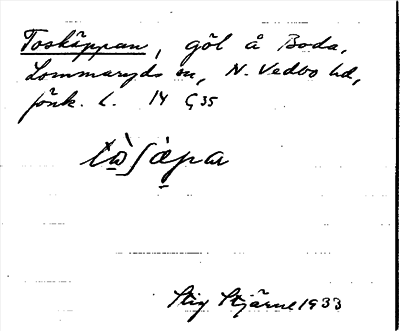 Toskäppan, göl å Boda,
Lommaryds sn, N. Vedbo hd,
Jönk. l. 14 Ç 35
Stig Stjärne 1933